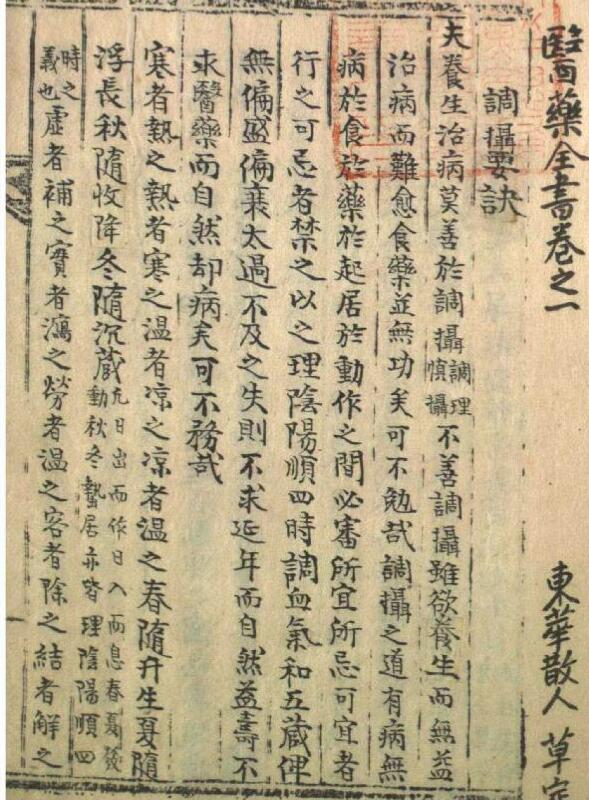 醫藥全書卷之一 東華散人 草定
調攝要訣
夫養生治病莫善於調攝調理慎攝不善調攝雖欲養生而無益
治病而難愈食藥並無功矣可不勉哉調攝之道有病無
病於食於藥於起居於動作之間必審所宜所忌可宜者
行之可忌者禁之以之理陰陽順四時調血氣和五蔵俾
無偏盛偏衰太過不及之失則不求延年而自然益壽不
求醫藥而自然却病矣可不務哉
寒者熱之熱者寒之温者凉之凉者温之春隨升生夏隨
浮長秋隨收降冬隨沉蔵凢日出而作日入而息春夏發動秋冬蟄居亦皆理陰陽順四
時之義也虛者補之實者瀉之勞者温之客者除之結者解之